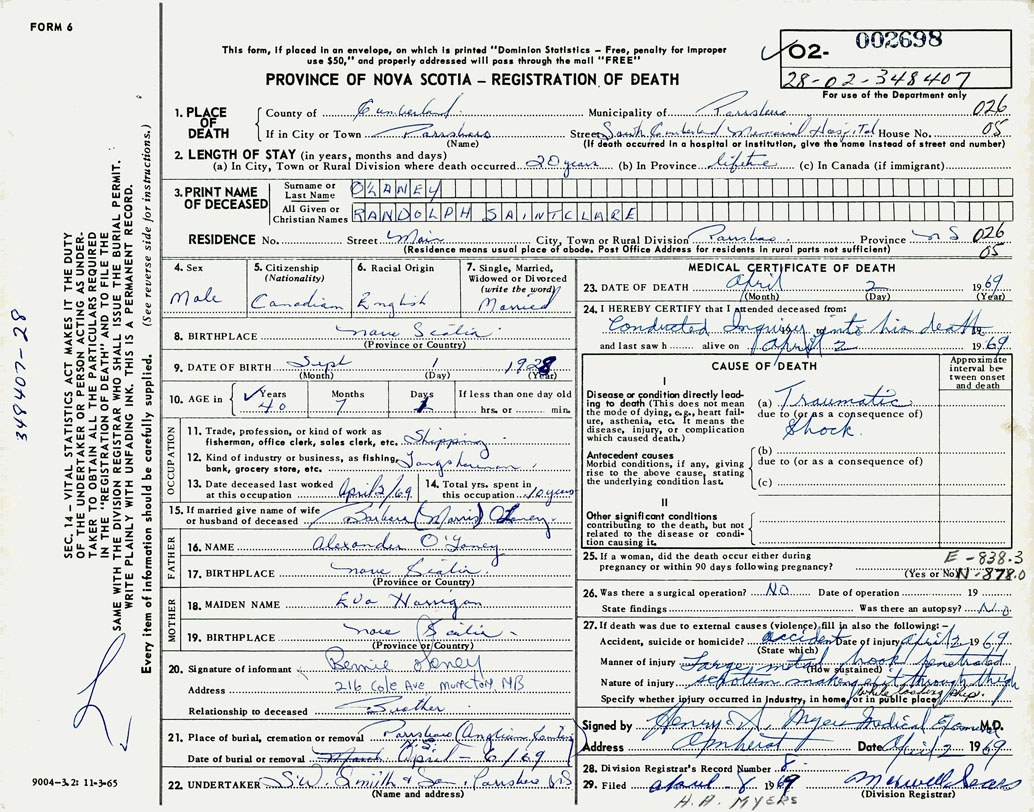 FORM 6
This form, if placed in an envelope, on which is printed "Dominion Statistics – Free, penalty for improper
use $50," and properly addressed will pass through the mail "FREE"
PROVINCE OF NOVA SCOTIA – REGISTRATION OF DEATH
02- 002698
28-02-348407
For use of the Department only
1. PLACE OF DEATH
County of Cumberland Municipality of Parrsboro 026
If in City or Town Parrsboro Street South Cumberland Memorial Hospital House No. 05
(Name) (If death occurred in a hospital or institution, give the name instead of street and number)
2. LENGTH OF STAY (in years, months and days)
(a) In City, Town or Rural Division where death occurred 20 years (b) In Province lifetime (c) In Canada (if immigrant)
3. PRINT NAME OF DECEASED
Surname or Last Name O'LANEY
All Given or Christian Names RANDOLPH SAINTCLARE
RESIDENCE No. Street Main City, Town or Rural Division Parrsboro Province N S 026
(Residence means usual place of abode. Post Office Address for residents in rural parts not sufficient) 05
4. Sex Male
5. Citizenship (Nationality) Canadian
6. Racial Origin English
7. Single, Married, Widowed or Divorced (write the word) Married
8. BIRTHPLACE Nova Scotia
(Province or Country)
9. DATE OF BIRTH Sept 1 1928
(Month) (Day) (Year)
10. AGE in Years 40 Months 7 Days 1 If less than one day old hrs. or min.
OCCUPATION
11. Trade, profession, or kind of work as fisherman, office clerk, sales clerk, etc. Shipping
12. Kind of industry or business, as fishing, bank, grocery store, etc. Longshoreman
13. Date deceased last worked at this occupation April 2/69
14. Total yrs. spent in this occupation 10 years
15. If married give name of wife or husband of deceased Barbara (Morris) O'Laney
FATHER
16. NAME Alexander O'Laney
17. BIRTHPLACE Nova Scotia
(Province or Country)
MOTHER
18. MAIDEN NAME Eva Harrigan
19. BIRTHPLACE Nova Scotia
(Province or Country)
20. Signature of informant Bernie Laney
Address 216 Cole Ave Moncton NB
Relationship to deceased Brother
21. Place of burial, cremation or removal Parrsboro (Anglican
N.S.
Date of burial or removal March April - 6/69
22. UNDERTAKER S.W. Smith & Son, Parrsboro NS
(Name and address)
MEDICAL CERTIFICATE OF DEATH
23. DATE OF DEATH April 2 1969
(Month) (Day) (Year)
24. I HEREBY CERTIFY that I attended deceased from:
Conducted Inquiry to into his death 19
and last saw h alive on April 2 1969
CAUSE OF DEATH
Approximate interval between onset and death
I
Disease or condition directly leading to death (This does not mean the mode of dying, e.g., heart failure, asthenia, etc. It means the disease, injury, or complication which caused death.)
(a) Traumatic
due to (or as a consequence of)
Shock.
Antecedent causes
Morbid conditions, if any, giving rise to the above cause, stating the underlying condition last.
(b)
due to (or as a consequence of)
(c)
II
Other significant conditions
contributing to the death, but not related to the disease or condition causing it.
25. If a woman, did the death occur either during pregnancy or within 90 days following pregnancy? (Yes or No)
E - 838.3
N - 878.0
26. Was there a surgical operation? NO Date of operation 19
State findings Was there an autopsy? No
27. If death was due to external causes (violence) fill in also the following:–
Accident, suicide or homicide? accident Date of injury April 2 1969
(State which)
Manner of injury Large metal hook penetrated
(How sustained)
Nature of injury making exit through thigh
while loading ship.
Specify whether injury occurred in industry, in home, or in public place
Signed by Henry A. Myers Medical Examiner M.D.
Address Amherst Date April 2 1969
28. Division Registrar's Record Number 8
29. Filed April 8 1969 Maxwell Sears
(Division Registrar)
H.A. MYERS
9004-3.2: 11-3-65
SEC. 14 – VITAL STATISTICS ACT MAKES IT THE DUTY
OF THE UNDERTAKER OR PERSON ACTING AS UNDER-
TAKER TO OBTAIN ALL THE PARTICULARS REQUIRED
IN THE "REGISTRATION OF DEATH" AND TO FILE THE
SAME WITH THE DIVISION REGISTRAR WHO SHALL ISSUE THE BURIAL PERMIT.
WRITE PLAINLY WITH UNFADING INK. THIS IS A PERMANENT RECORD.
Every item of information should be carefully supplied. (See reverse side for instructions.)
348407-28